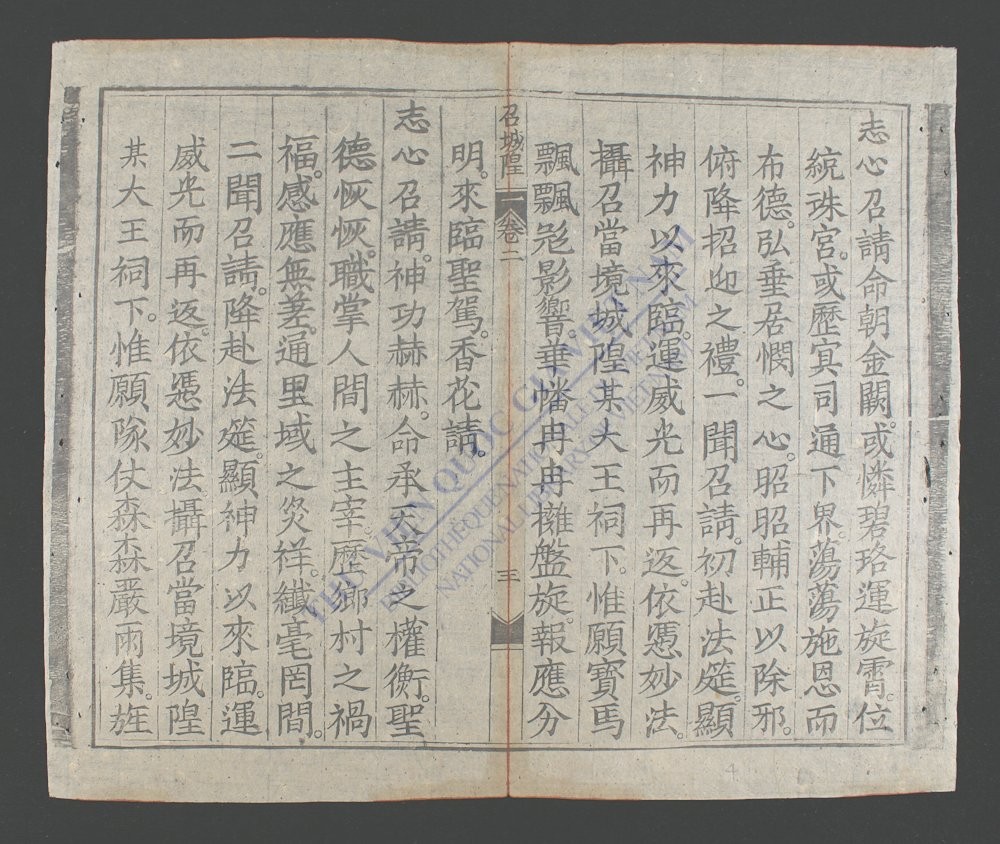 志心召請命朝金闕。或憐碧珞運旋霄。位
綂珠宮。或歷冥司通下界。蕩蕩施恩而
布德。弘垂居憫之心。昭昭輔正以除邪。
俯降招迎之禮。一聞召請。初赴法筵。顯
神力以來臨。運威光而再返。依憑妙法。
攝召當境城隍某大王祠下。惟願寳馬
飄飄。彩影響。華幡冉冉擁盤旋。報應分
明。來臨聖駕。香花請。
召城隍 卷二 三
志心召請。神功赫赫。命承天帝之權衡。聖
德恢恢。職掌人間之主宰。歷鄉村之禍
福。感應無差。通里域之灾祥。纖毫罔間。
二聞召請。降赴法筵。顯神力以來臨。運
威光而再返。依憑妙法攝召當境城隍
某大王祠下。惟願隊仗森森嚴雨集。旌
THƯ VIỆN QUỐC GIA VIỆT NAM
BIBLIOTHÈQUE NATIONALE DU VIETNAM
NATIONAL LIBRARY OF VIETNAM
4